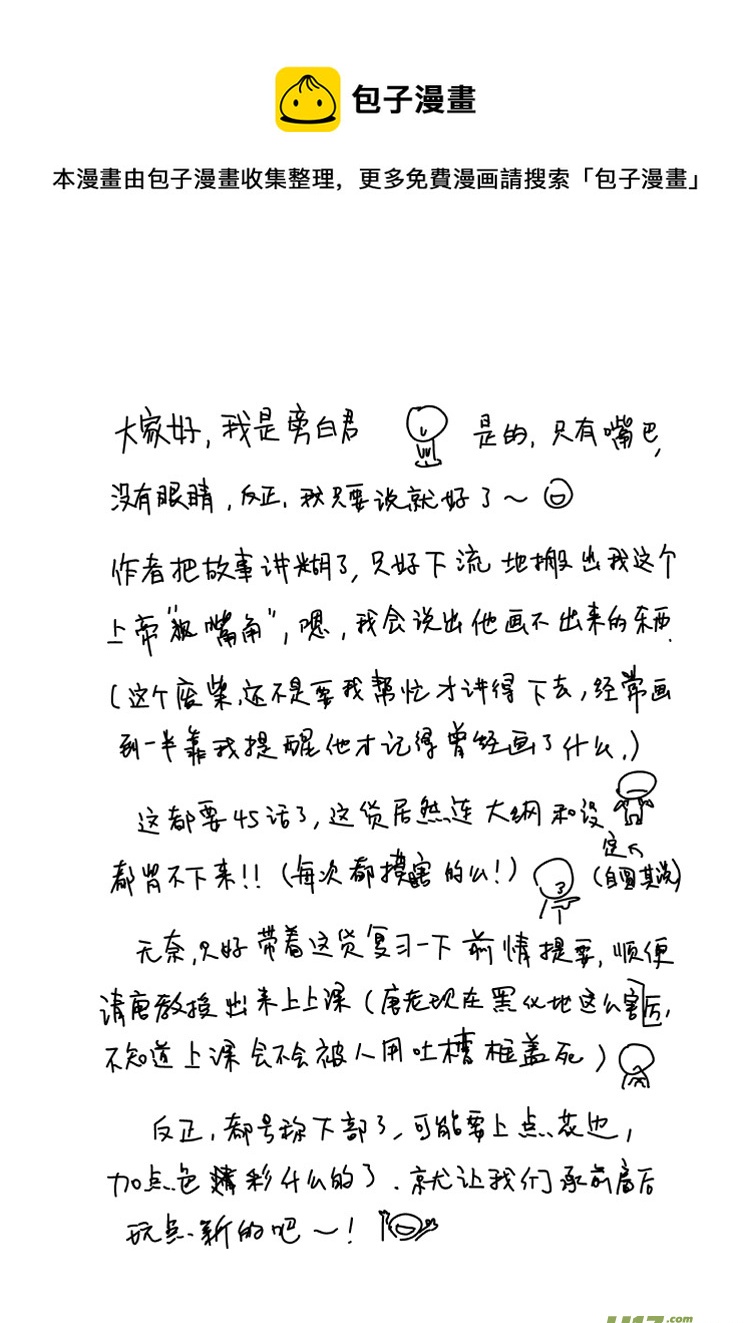 包子漫畫
本漫畫由包子漫畫收集整理，更多免費漫画請搜索「包子漫畫」
大家好，我是旁白君 是的，只有嘴巴，
没有眼睛，反正，我只要说就好了～
作者把故事讲糊了，只好下流地搬出我这个
上帝"视嘴角"，嗯，我会说出他画不出来的东西.
(这个废柴，还不是要我帮忙才讲得下去，经常画
到一半靠我提醒他才记得曾经画了什么.)
这都要45话了，这货居然连大纲和设
定
都背不下来!!(每次都摸瞎的么!) (自圆其说)
无奈，只好带着这货复习一下前情提要，顺便
请唐教授出来上上课(唐老现在黑化地这么厉害，
不知道上课会不会被人用吐槽框盖死)
反正，都号称下部了，可能要上点花边，
加点色彩什么的了.就让我们承前启后
玩点新的吧～!
U17.com